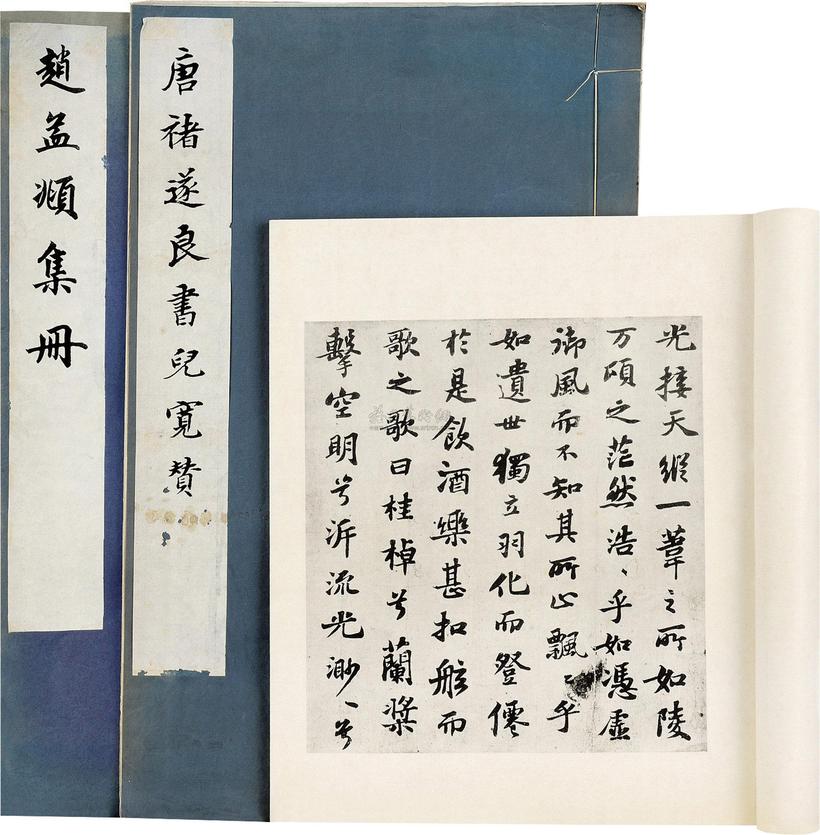 趙孟頫集冊
唐褚遂良書兒寬賛
光接天縱一葦之所如陵
万頃之茫然浩〻乎如憑虛
御風而不知其所止飄〻乎
如遺世獨立羽化而登僊
於是飲酒樂甚扣舷而
歌之歌曰桂棹兮蘭槳
擊空明兮泝流光渺〻兮